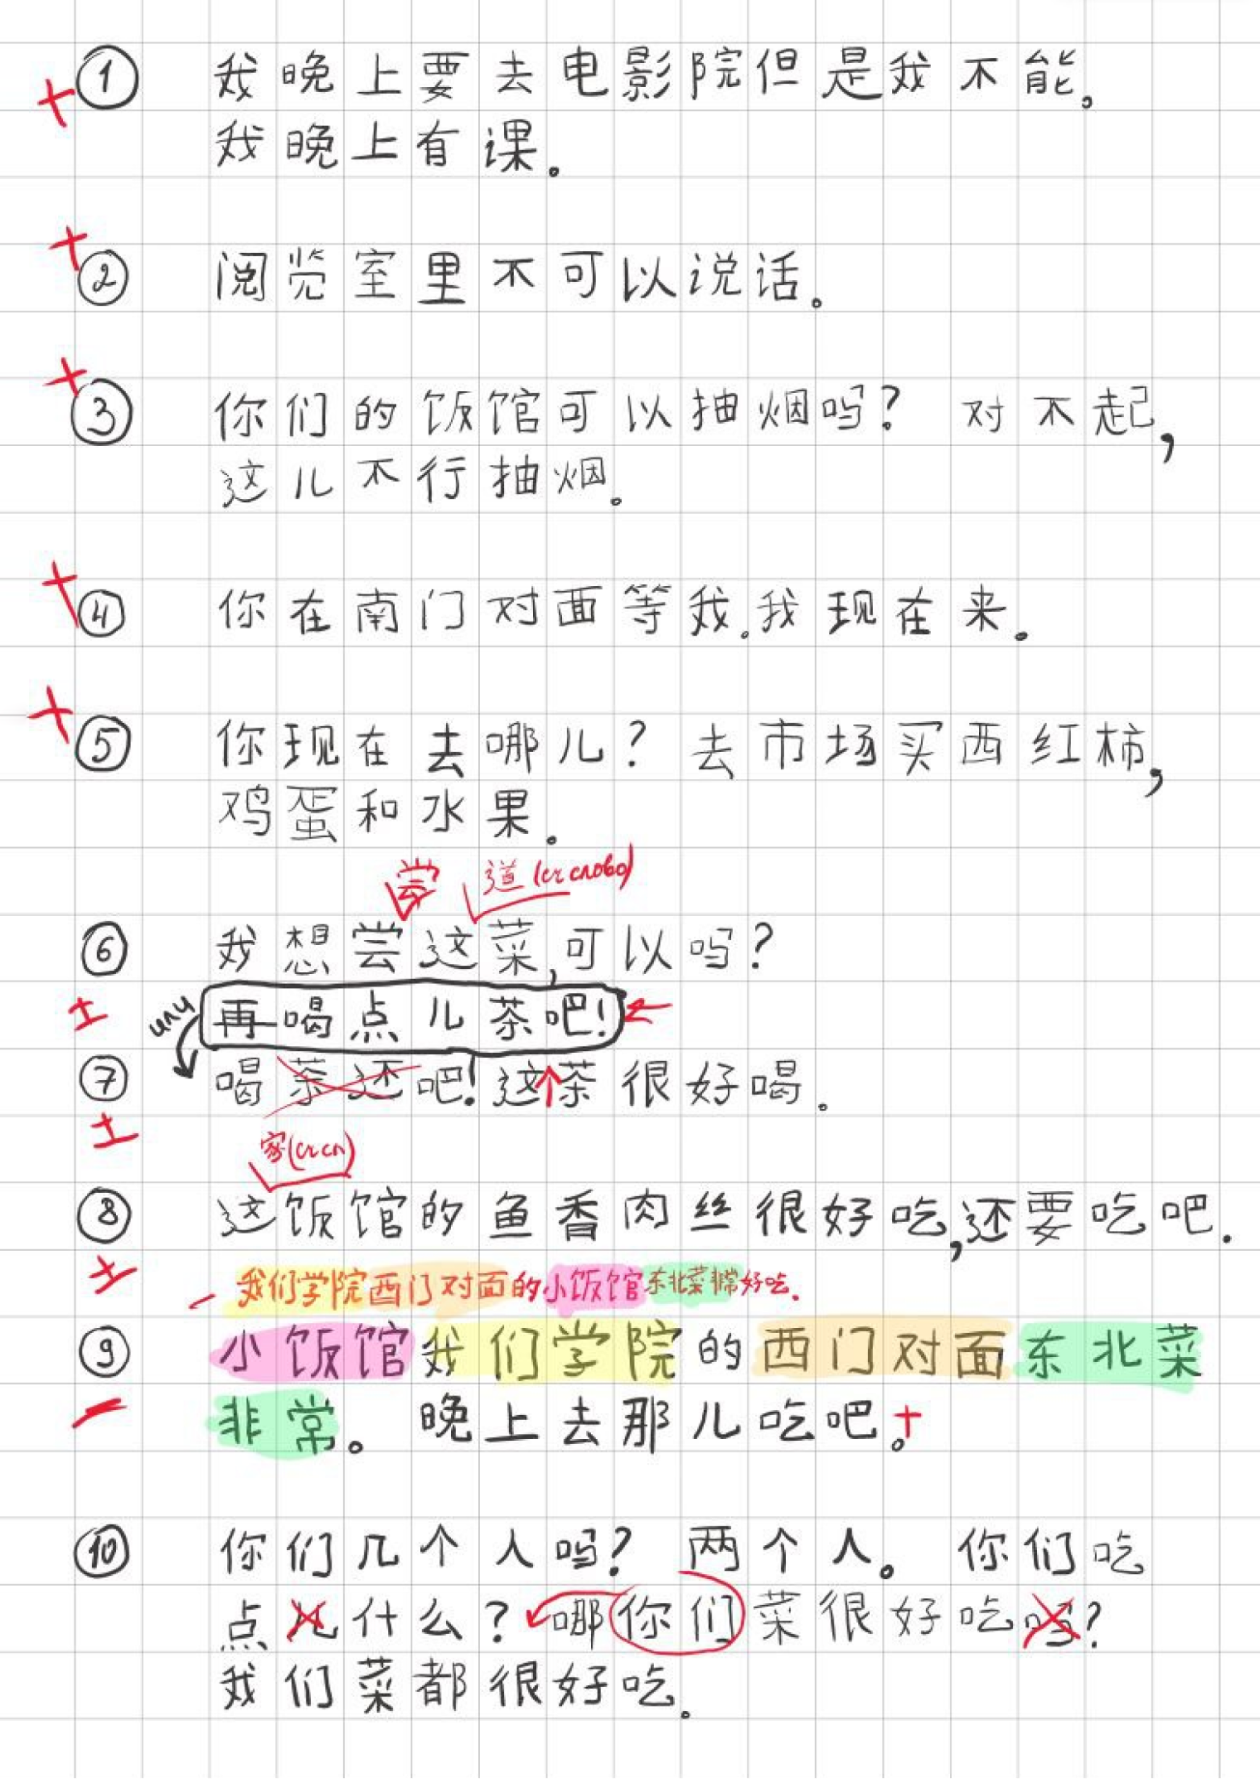 ① 我晚上要去电影院但是我不能。
我晚上有课。
② 阅览室里不可以说话。
③ 你们的饭馆可以抽烟吗? 对不起,
这儿不行抽烟。
④ 你在南门对面等我。我现在来。
⑤ 你现在去哪儿? 去市场买西红柿,
鸡蛋和水果。
尝 道 (сч слово)
⑥ 我想尝这菜,可以吗?
± или 再喝点儿茶吧!
⑦ 喝茶还吧! 这茶很好喝.
±
家 (сч сл)
⑧ 这饭馆的鱼香肉丝很好吃,还要吃吧.
± - 我们学院西门对面的小饭馆东北菜非常好吃.
⑨ 小饭馆我们学院的西门对面东北菜
非常。 晚上去那儿吃吧。+
⑩ 你们几个人吗? 两个人。 你们吃
点儿什么? 哪你们菜很好吃吗?
我们菜都很好吃。